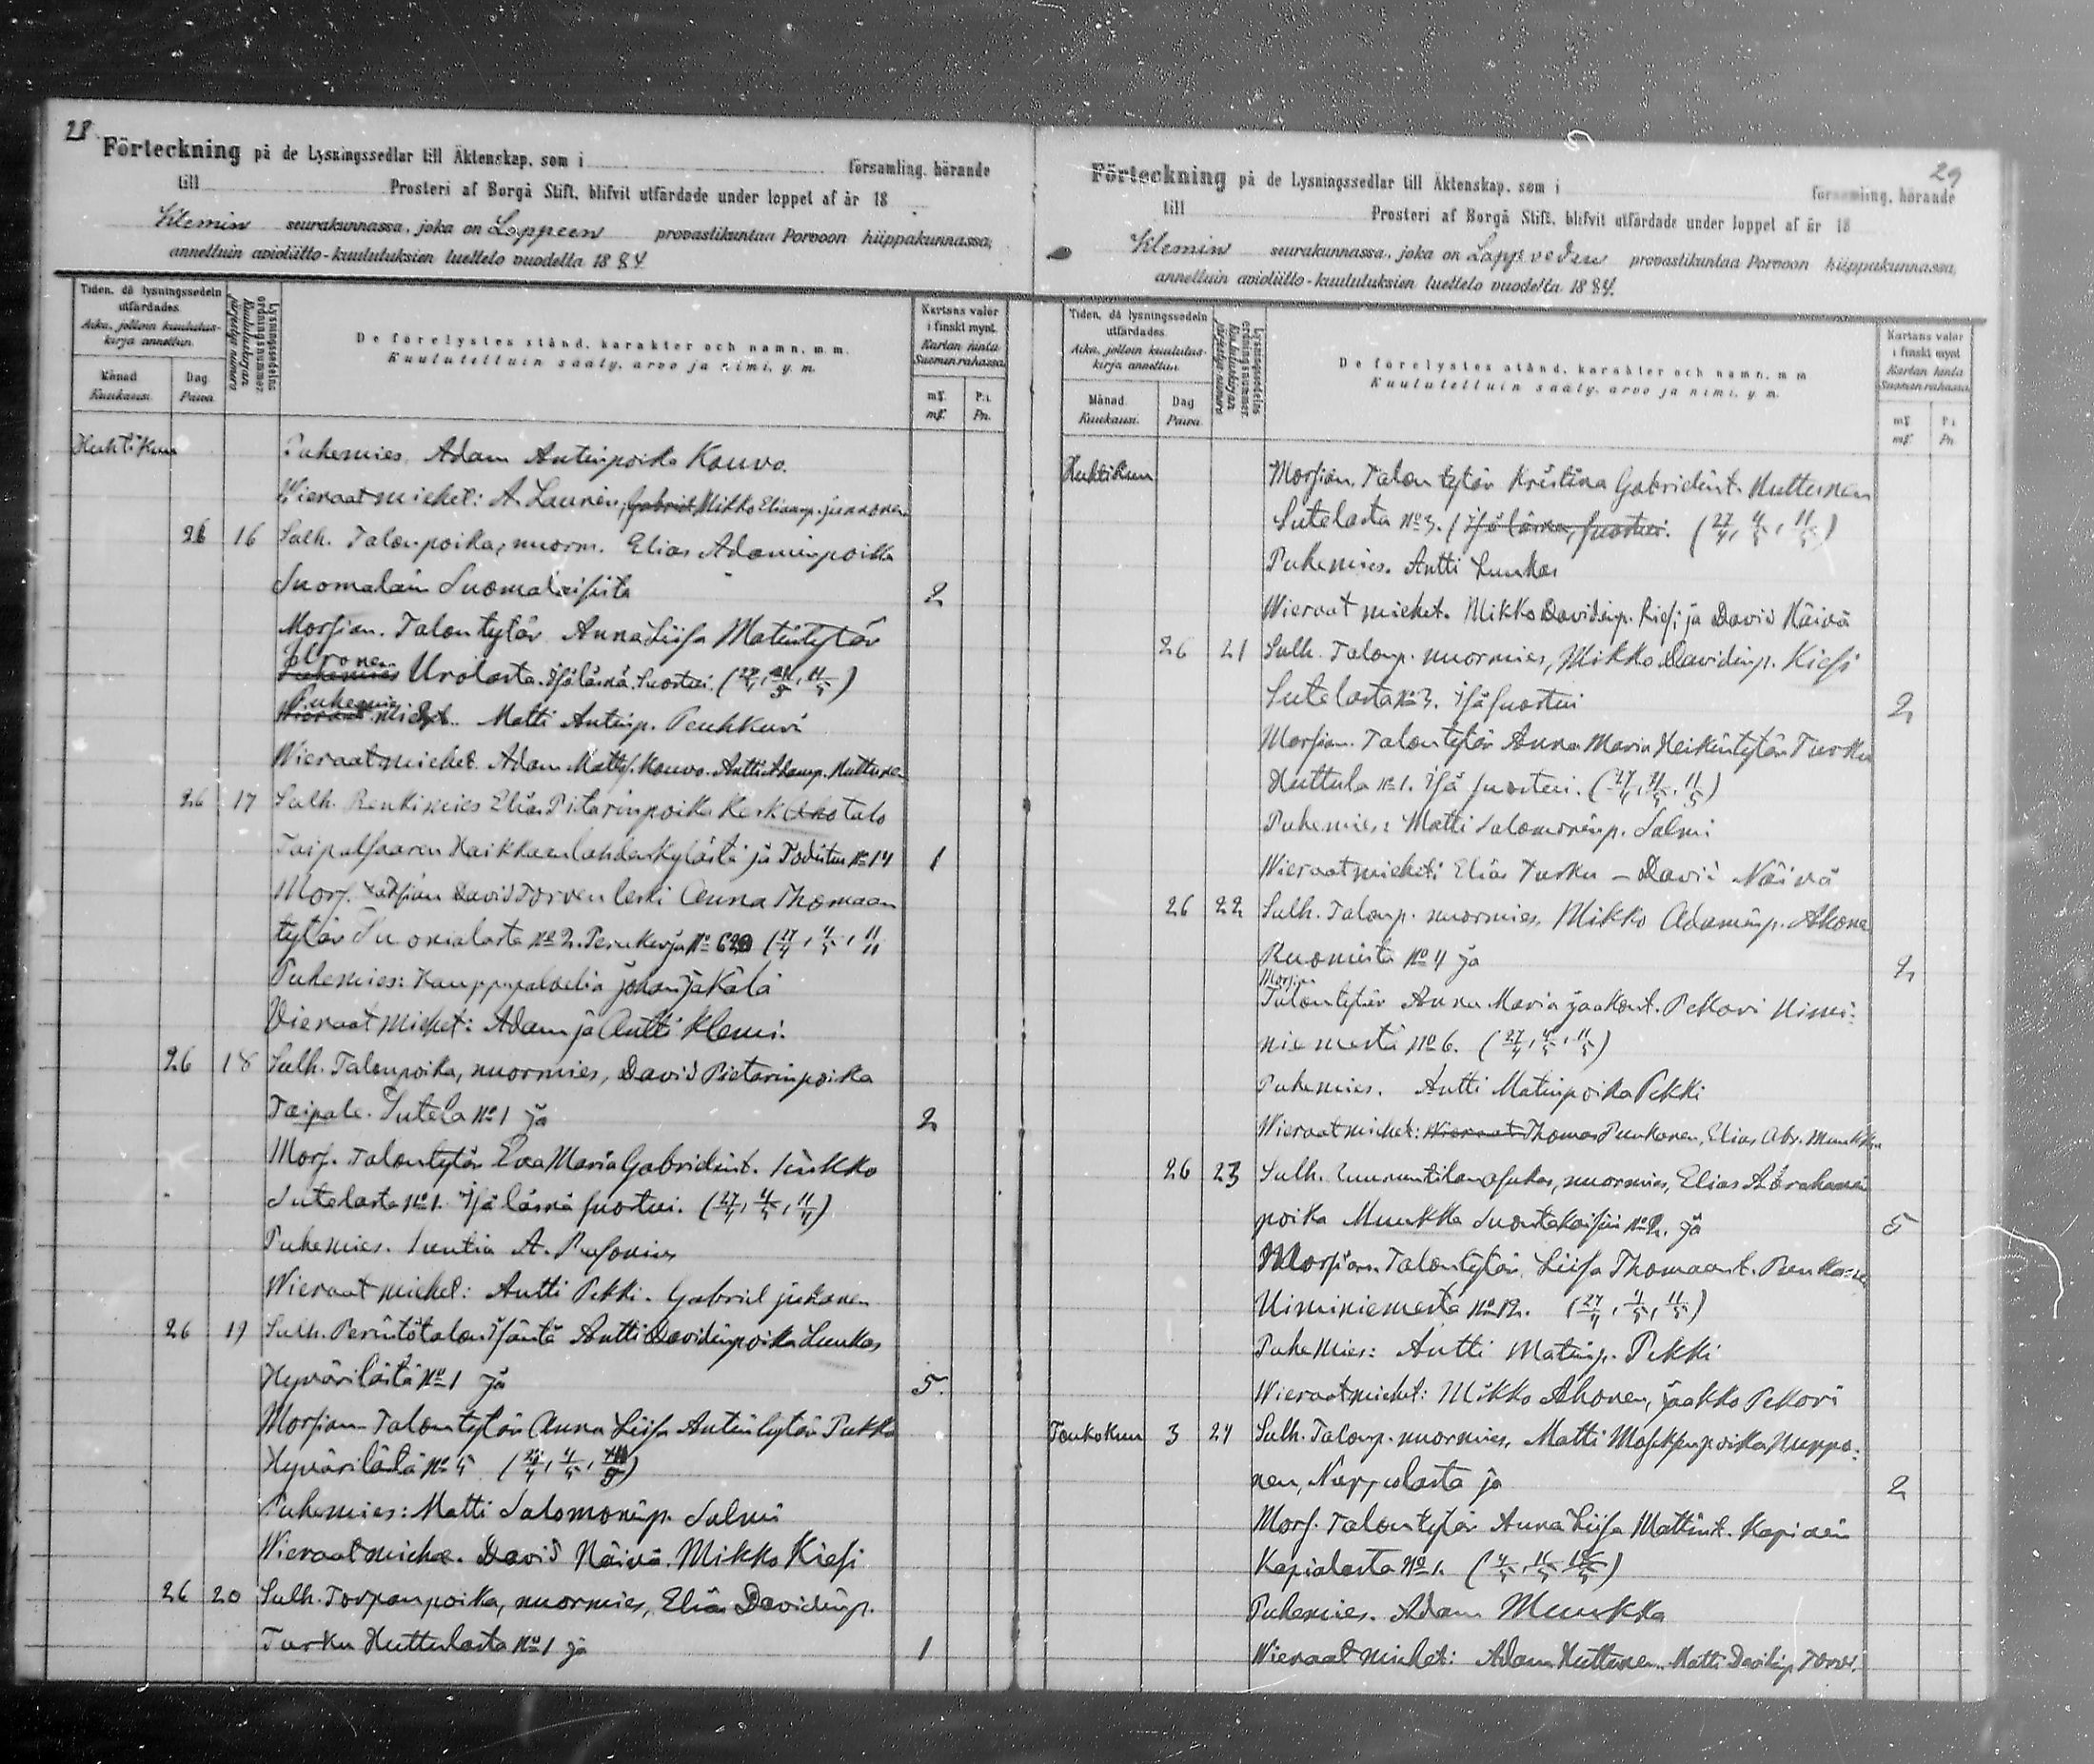 28
Förteckning på de Lysningssedlar till Äktenskap, som i församling, hörande
till Prosteri af Borgå Stift, blifvit utfärdade under loppet af år 18
Klemin seurakunnassa, joka on Lappeen provastikuntaa Porvoon hiippakunnassa,
annettuin avioliitto-kuulutuksien luettelo vuodelta 1884
Tiden, då lysningssedeln utfärdades.
Aika, jolloin kuulutuskirja annettiin.
Månad Kuukausi.
Dag Päivä
Lysningssedelns ordningsnummer.
Kuulutuskirjan järjestys-numero
De förelystes stånd, karakter och namn, m. m.
Kuulutettuin sääty, arvo ja nimi, y. m.
Kartans valör i finskt mynt.
Kartan hinta Suomen rahassa.
mf. mf.
P:i. Pn.
Huhtikuu Puhemies. Adam Antinpoika Kouvo.
Wieraat miehet: A. Lauren, Gabriel Mikko Eliasp. Junnonen
26 16 Sulh. Talonpoika, nuorm. Elias Adaminpoika
Suomalain Suomalaisista 2
Morsian. Talontytär Anna Liisa Matintytär
Puhemies Urolasta. Isä läsnä. Suostui. (27/4, 4/5, 11/5)
Puhemies Wieraat miehet.. Matti Antinp. Penhkuri
Wieraat miehet. Adam Matts. Kouvo. Antti Adamp. Huttunen
26 17 Sulh. Renkimies Elias Pitarinpoika Kesk Aho talo
Taipalsaaren Haikkaanlahden kylästä ja Todistus No 14 1
Mors. David Torven leski Anna Thomaan
tytär Suomalasta No 2. Perukirja No 620 (27/4, 4/5, 11/11
Puhemies: Johan Jäkälä
Vieraat miehet: Adam ja Antti Klemi.
26 18 Sulh. Talonpoika, nuormies, David Pietarinpoika
Taipale. Sutela No 1 ja 2
Mors. Talontytär Eva Maria Gabrielint. Kinkko
Sutelasta No 1. Isä läsnä suostui. (27/4, 4/5, 11/4)
Puhemies. A.
Wieraat miehet: Antti Pekki. Gabriel Jukanen
26 19 Sulh. Perintötalon Isäntä Antti Davidinpoika Luukas
Hyvärilästä No 1 ja 5.
Morsian Talontytär Anna Liisa Antintytär Pukko
Hyvärilästä No 5 (27/4, 4/5, 11/5)
Puhemies: Matti Salomoninp. Salmi
Wieraat miehe. David Näivä. Mikko Kiesi
26 20 Sulh. Torpanpoika, nuormies, Elias Davidinp.
Turku Huttulasta No 1 ja 1
29
Förteckning på de Lysningssedlar till Äktenskap, som i församling, hörande
till Prosteri af Borgå Stift, blifvit utfärdade under loppet af år 18
Klemin seurakunnassa, joka on Lappveden provastikuntaa Porvoon hiippakunnassa,
annettuin avioliitto-kuulutuksien luettelo vuodelta 1884.
Tiden, då lysningssedeln utfärdades.
Aika, jolloin kuulutuskirja annettiin
Månad. Kuukausi.
Dag Päivä.
Lysningssedelns ordningsnummer.
Kuulutuskirjan järjestys-numero
De förelystes stånd, karakter och namn, m. m
Kuulutettuin sääty, arvo ja nimi, y. m.
Kartans valör i finskt mynt
Kartan hinta Suomen rahassa.
mf mf.
P:i Pn.
Huhtikuu Morsian. Talontytär Kristina Gabrielint. Huttunen
Sutelasta No 3. (Isä läsnä, suostui. (27/4, 4/5, 11/5)
Puhemies. Antti Luukas
Wieraat miehet. Mikko Davidinp. Kiesi ja David Näivä
26 21 Sulh. Talonp. nuormies, Mikko Davidinp. Kiesi
Sutelasta No 3. Isä suostui 2
Morsian. Talontytär Anna Maria Heikintytär Turku
Huttula No 1. Isä suostui. (27/4, 4/5, 11/5)
Puhemies: Matti Salomoninp. Salmi
Wieraat miehet: Elias Turku – David Näivä
26 22 Sulh. Talonp. nuormies, Mikko Adaminp. Ahonen
Ruomista No 4 ja 2
Morsian
Talontytär Anna Maria Jaakont. Pekkori Niini-
niemestä No 6. (27/4, 4/5, 11/5)
Puhemies. Antti Matinpoika Pekki
Wieraat miehet: Wieraat Thomas Punkanen, Elias Abr. Munkka
26 23 Sulh. asukas, nuormies, Elias Abrahamin
poika Munkka No 2. ja 5
Morsian. Talontytär. Liisa Thomaant. Punkanen
Niiniemestä No 12. (27/4, 4/5, 11/5)
Puhemies: Antti Matinp. Pekki
Wieraat miehet: Mikko Ahonen, Jaakko Pekkori
Toukokuu 3 24 Sulh. Talonp. nuormies, Matti Nuppo-
nen, Nuppolasta ja 2
Mors. Talontytär Anna Liisa Mattint. Kapiain
Kapialasta No 1. (4/5, 11/5, 18/5)
Puhemies. Adam Munkka
Wieraat miehet: Adam Huttunen. Matti Davidinp. Torvi.